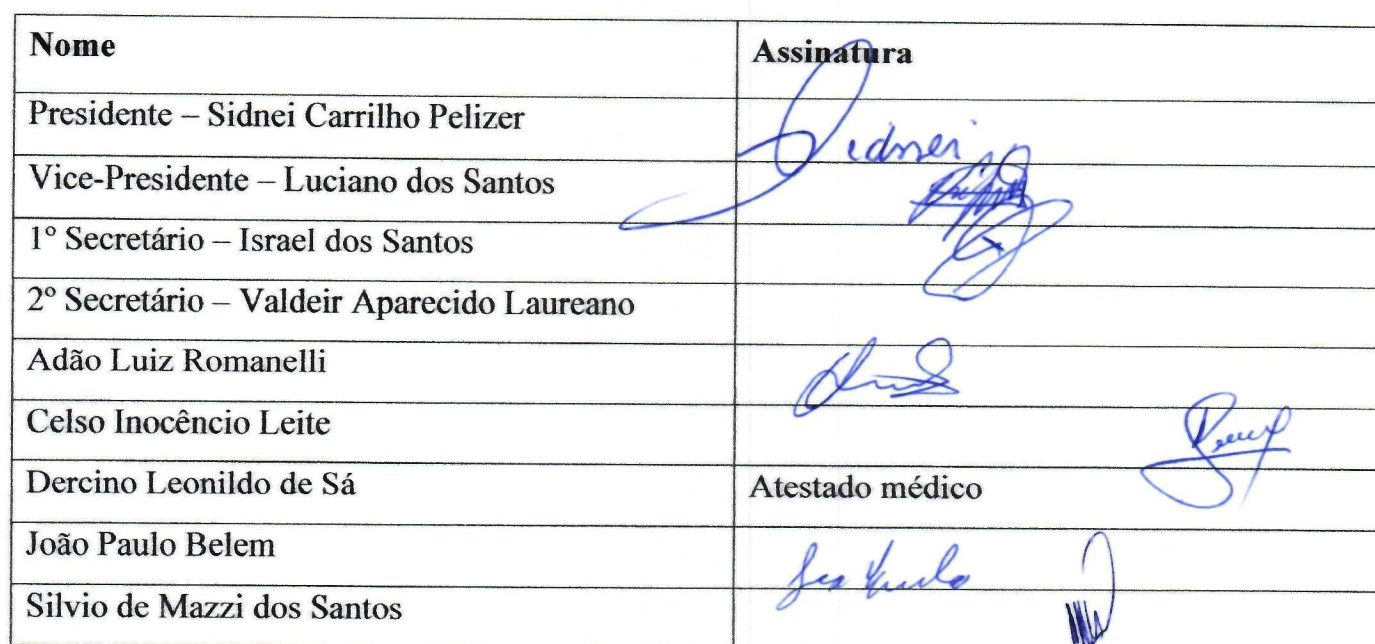 Nome Assinatura
Presidente – Sidnei Carrilho Pelizer Sidnei
Vice-Presidente – Luciano dos Santos
1º Secretário – Israel dos Santos
2º Secretário – Valdeir Aparecido Laureano
Adão Luiz Romanelli
Celso Inocêncio Leite
Dercino Leonildo de Sá Atestado médico
João Paulo Belem
Silvio de Mazzi dos Santos